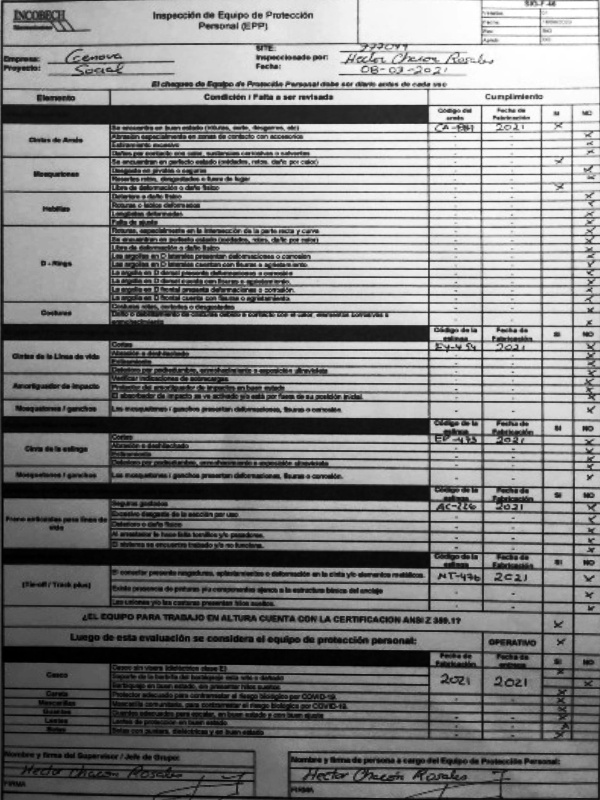 INCOBECH
Inspección de Equipo de Protección Personal (EPP)
SIG-F-46
SITE: 777044
Empresa: Icenova
Inspeccionado por: Hector Chacon Rosales
Proyecto: Social
Fecha: 08-03-2021
El chequeo de Equipo de Protección Personal debe ser diario antes de cada uso
Elemento Condición / Falta a ser revisada Cumplimiento
Código del arnés Fecha de Fabricación SI NO
Cintas de Arnés
Se encuentra en buen estado (roturas, corte, desgarros, etc) 2021 X
Abrasión especialmente en zonas de contacto con accesorios X
Estiramiento excesivo X
Daños por contacto con calor, sustancias corrosivas o solventes X
Mosquetones
Se encuentran en perfecto estado (oxidados, rotos, daño por calor) X
Desgaste en pivotes o seguros X
Resortes rotos, desgastados o fuera de lugar X
Libre de deformación o daño físico X
Hebillas
Deterioro o daño físico X
Roturas o lados deformados X
Longitudes deformadas X
Falta de ajuste X
D - Rings
Roturas, especialmente en la intersección de la parte recta y curva X
Se encuentran en perfecto estado (oxidados, rotos, daño por calor) X
Libre de deformación o daño físico X
Las argollas en D laterales presentan deformaciones o corrosión X
Las argollas en D laterales cuentan con fisuras o agrietamiento X
La argolla en D dorsal presenta deformaciones o corrosión X
La argolla en D dorsal cuenta con fisuras o agrietamiento. X
La argolla en D frontal presenta deformaciones o corrosión. X
La argolla en D frontal cuenta con fisuras o agrietamiento. X
Costuras
Costuras rotas, cortadas o desgastadas X
Código de la eslinga Fecha de Fabricación SI NO
Cintas de la Línea de vida
Cortes EY-454 2021 X
Abrasión o deshilachado X
Estiramiento X
Deterioro por podredumbre, enmohecimiento o exposición ultravioleta X
Amortiguador de impacto
Verificar indicaciones de sobrecargas X
Protector del amortiguador de impactos en buen estado X
El absorbedor de impacto se ve activado y/o está por fuera de su posición inicial. X
Mosquetones / ganchos
Los mosquetones / ganchos presentan deformaciones, fisuras o corrosión. X
Código de la eslinga Fecha de Fabricación SI NO
Cinta de la eslinga
Cortes EP-473 2021 X
Abrasión o deshilachado X
Estiramiento X
Deterioro por podredumbre, enmohecimiento o exposición ultravioleta X
Mosquetones / ganchos
Los mosquetones / ganchos presentan deformaciones, fisuras o corrosión. X
Código de la eslinga Fecha de Fabricación SI NO
Freno anticaídas para línea de vida
Seguros gastados AC-226 2021 X
Excesivo desgaste de la sección por uso X
Deterioro o daño físico X
Al arrastrar la base falta tornillos y/o pasadores. X
El sistema se encuentra trabado y/o no funciona. X
Código de la eslinga Fecha de Fabricación SI NO
(Tie-off / Track plus)
El conector presenta rasgaduras, aplastamientos o deformación en la cinta y/o elementos metálicos. NT-476 2021 X
Existe presencia de pinturas y/o componentes ajenos a la estructura básica del anclaje X
Las uniones y/o las costuras presentan hilos sueltos. X
¿EL EQUIPO PARA TRABAJO EN ALTURA CUENTA CON LA CERTIFICACION ANSI Z 359.1? X
Luego de esta evaluación se considera el equipo de protección personal: OPERATIVO X
Fecha de Fabricación Fecha de entrega SI NO
Casco
Casco sin visera (dieléctrico clase E) 2021 2021 X
Soporte de la barbilla del barbiquejo esta roto o dañado X
Barbiquejo en buen estado, sin presentar hilos sueltos X
Careta
Protector adecuado para contrarrestar el riesgo biológico por COVID-19. X
Mascarillas
Mascarilla comunitaria, para contrarrestar el riesgo Biológico por COVID-19. X
Guantes
Guantes adecuados para escalar, en buen estado y con buen ajuste X
Lentes
Lentes de protección en buen estado X
Botas
Botas con puntera, dieléctricas y en buen estado X
Nombre y firma del Supervisor / Jefe de Grupo: Hector Chacon Rosales
FIRMA
Nombre y firma de persona a cargo del Equipo de Protección Personal: Hector Chacon Rosales
FIRMA